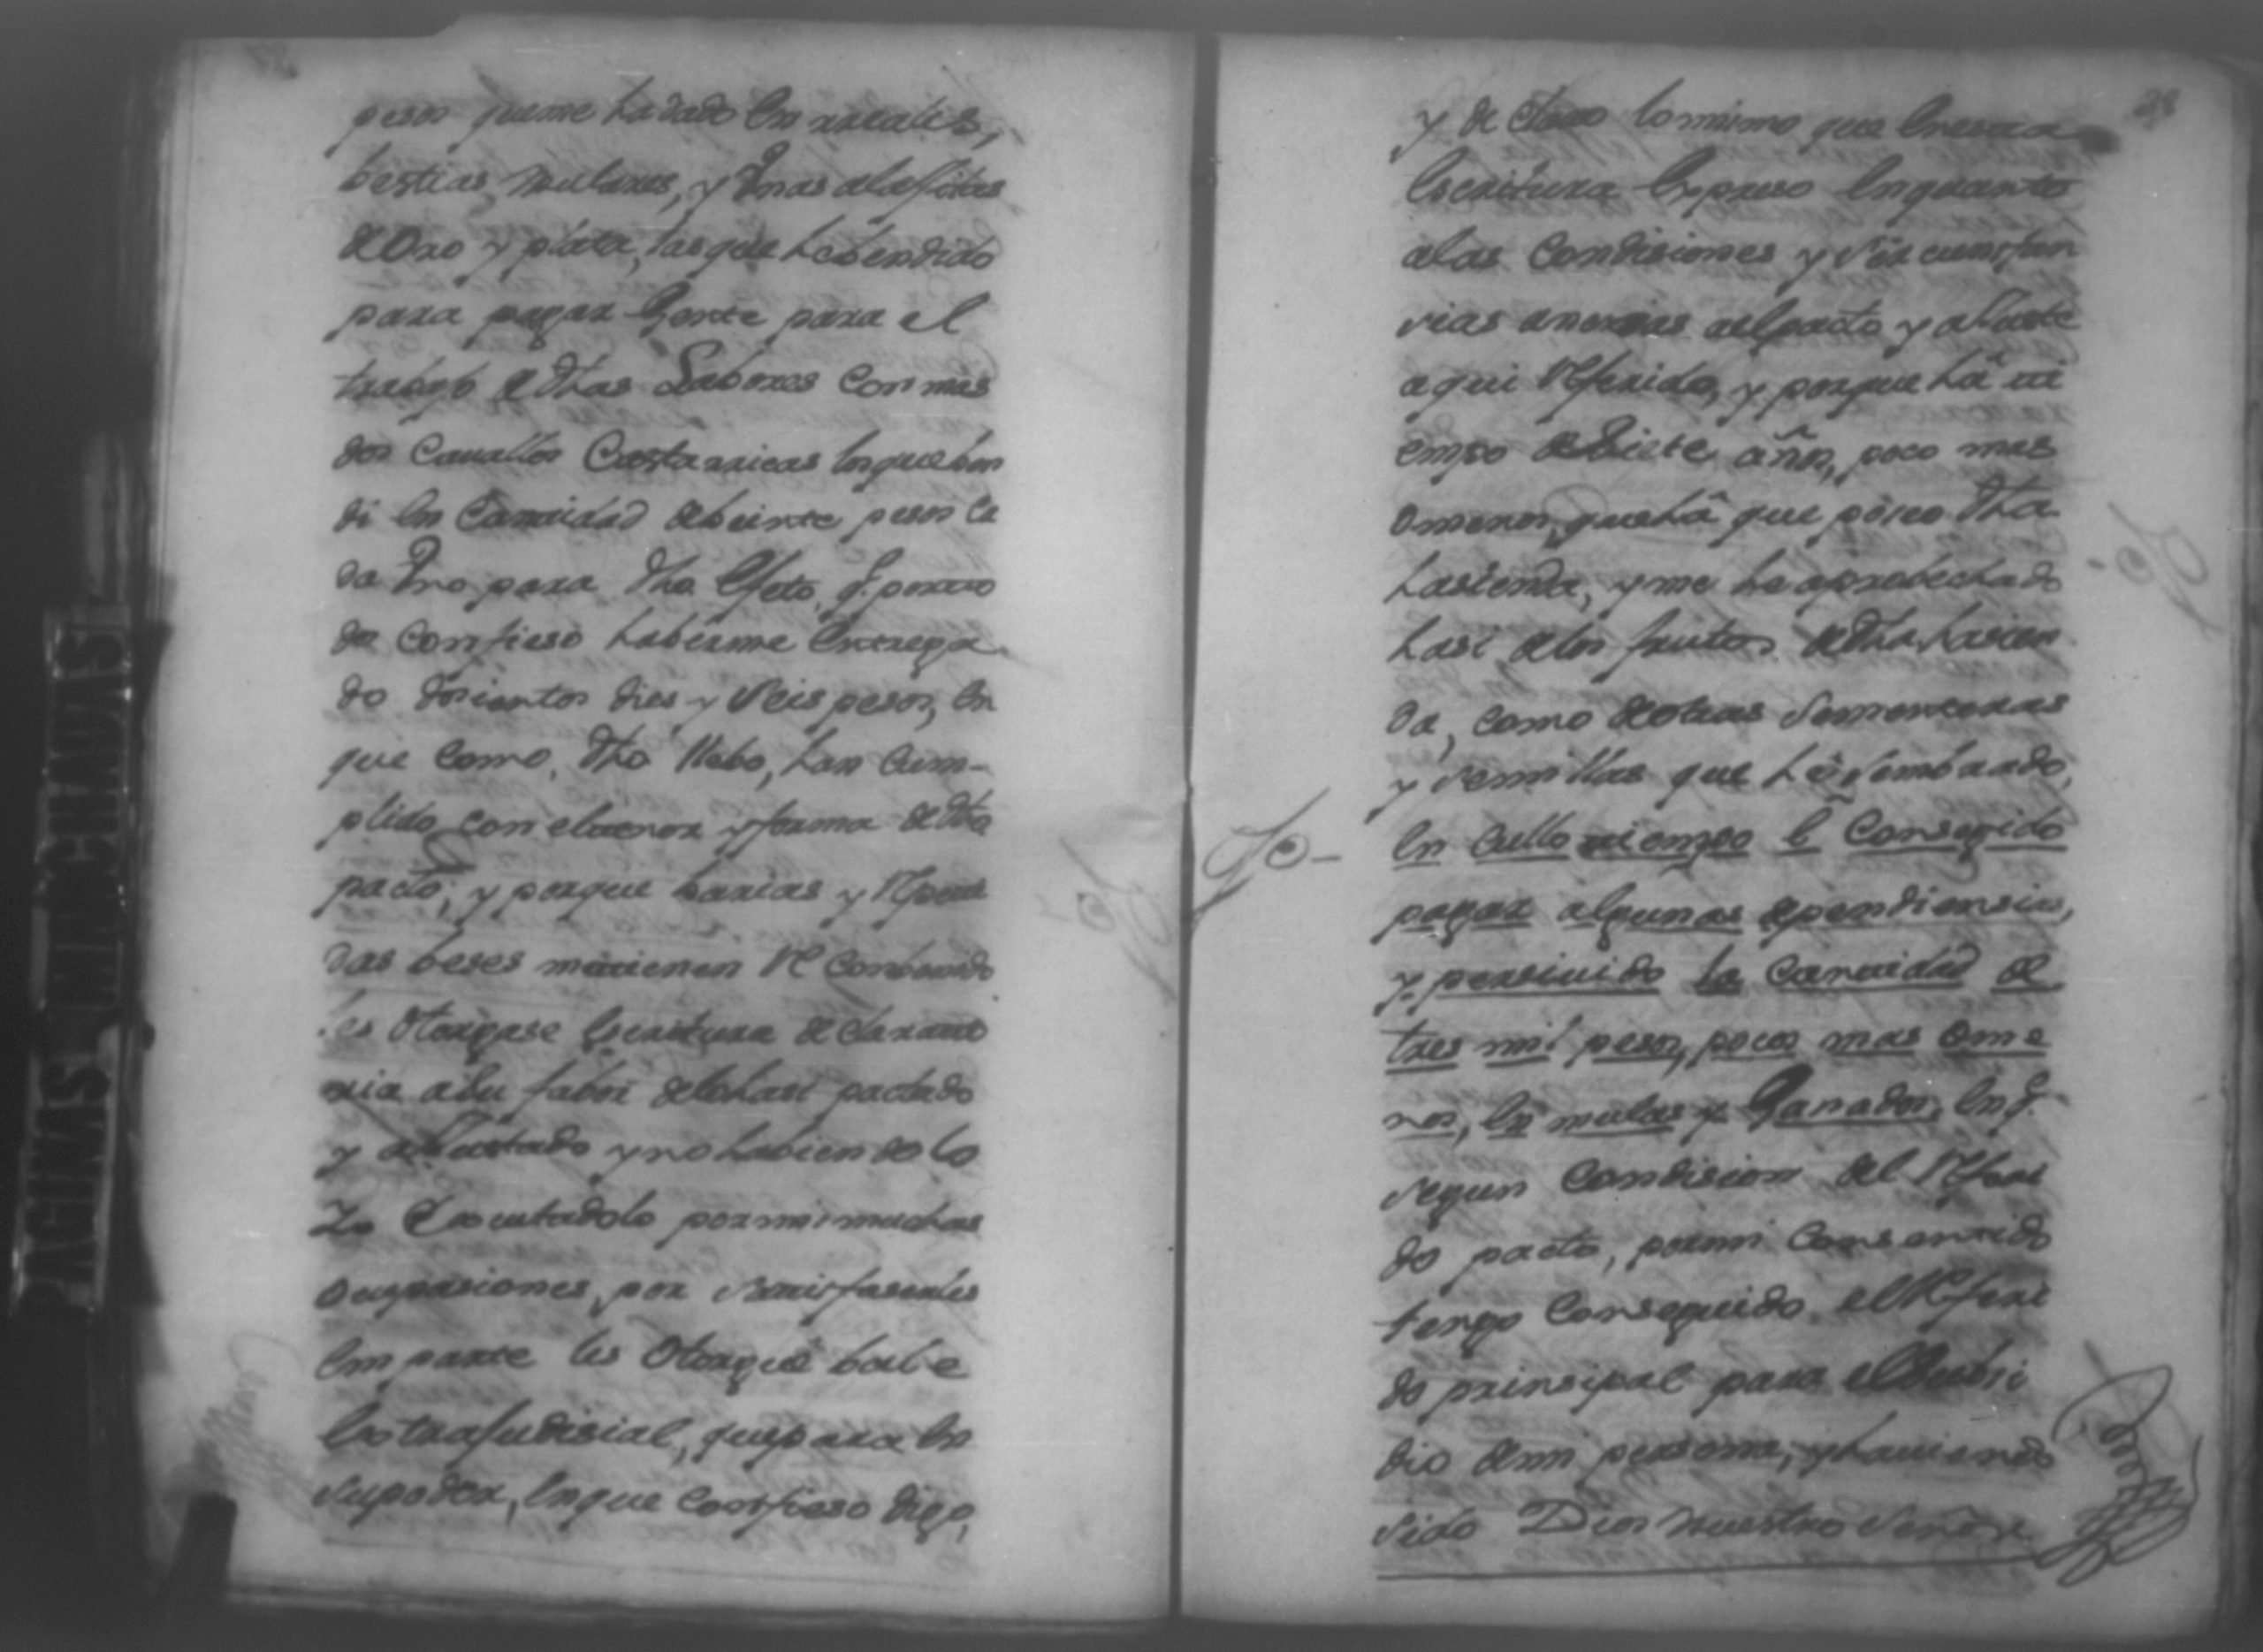 pesos queme ha dado en rreales,
bestias mulares, y Unas alajitas
de Oro y plata, las que he bendido
para pagar Gente para el
trabajo de dhas Labores con mas
dos Cavallos Costarricas los que ben
di en Cantidad de beinte pesos ca
da Uno para dho Efeto, q.e por to
do confieso haberme Entrega
do dosientos dies y Seis pesos, en
que como, dho llebo, han Cum-
plido con el tenor y forma de dho
pacto, y porque barias y Repeti
das beses me tienen Re combenido
les Otorgase Escritura declarato
ria a Su fabor de lo hasi pactado
y aJustado y no habiendolo
Yo Executadolo por mis muchas
Ocupasiones, por Satisfaserles
En parte les Otorgué bale
Extrajudisial, que para en
Su poder, En que Confieso digo,
y declaro lo mismo que En esta
Escritura Expreso En quanto
alas Condisiones y Sircunstan
cias anexas al pacto y aJuste
aqui Referido, y porque há ti
empo de Siete años, poco mas
o menos, que há que póseo dha
hasienda, y me he aprobechado
hasi delos frutos de dha hasien
da, como de otras Sementeras
y Semillas que hé Sembrado,
En Cullo tiempo é Conseguido
pagar algunas dependiensias,
y persiuido la Cantidad de
tres mil pesos, poco mas o me
nos, En mulas y Ganados, En q.e
Segun Condision del Referi
do pacto, por mi Consentido
tengo Conseguido el Referi
do prinsipal para el Subsi
dio de mi persona, y haviendo
Sido Dios Nuestro Señor
PAGINAS MANCHADAS